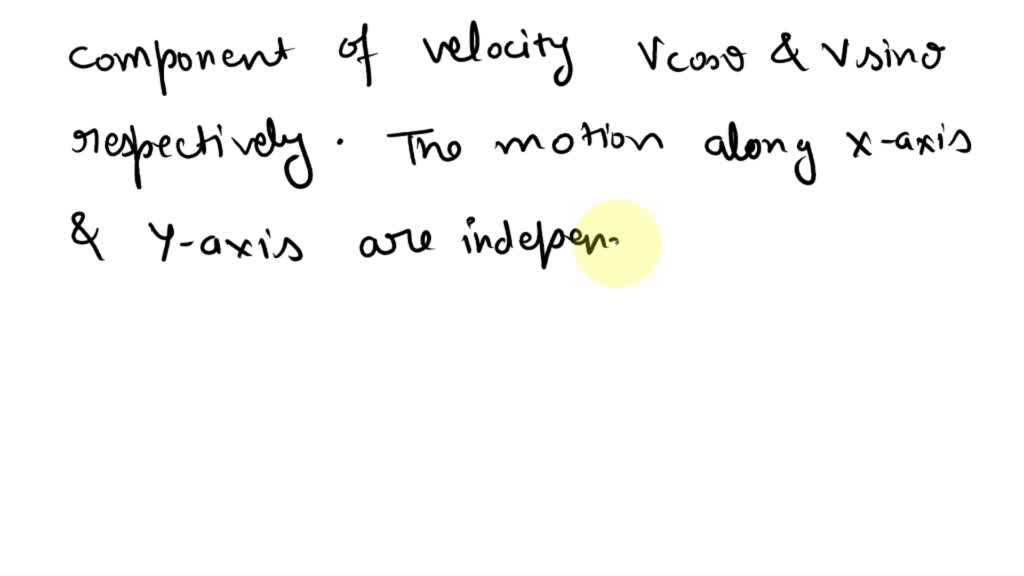 component of velocity Vcosθ & Vsinθ
respectively. The motion along x-axis
& Y-axis are indepen